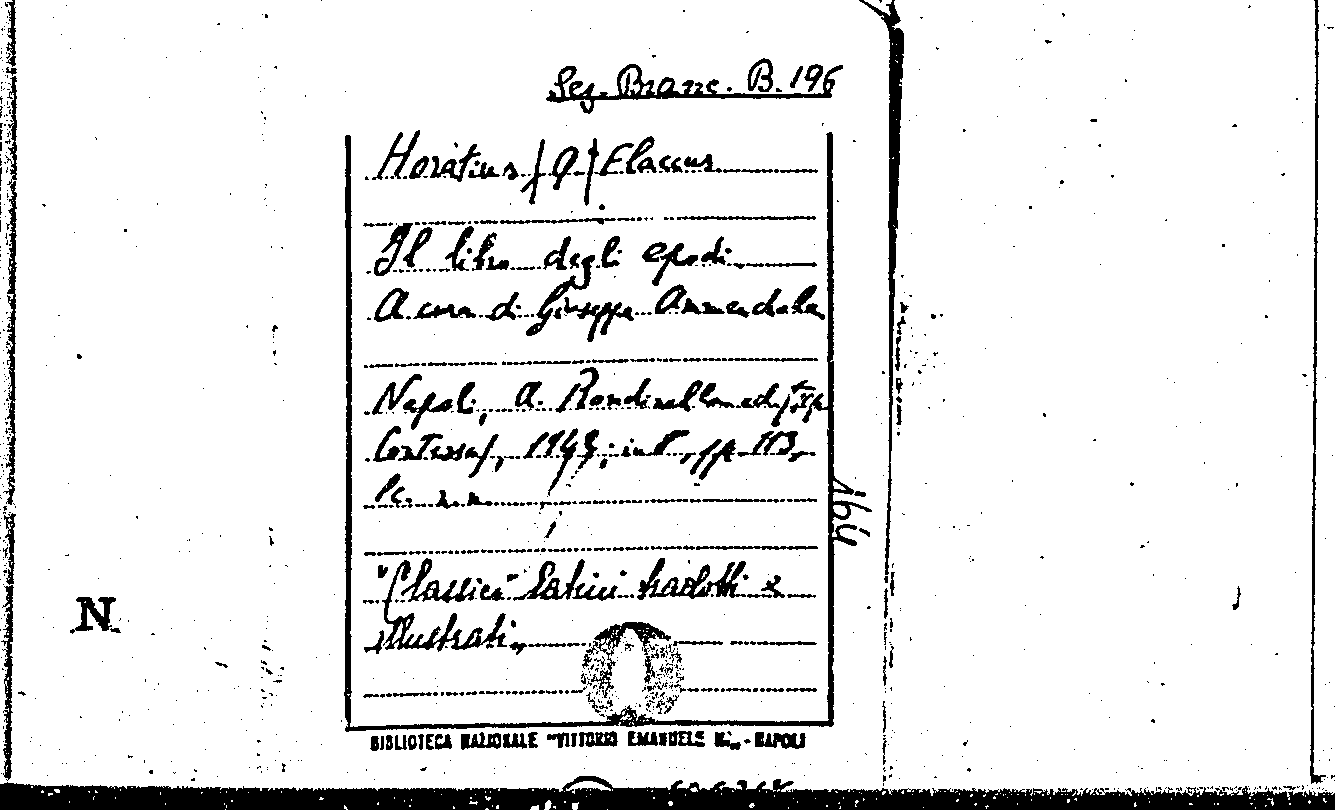 Sez. Branc. B. 196
Horatius (Q) Flaccus
Il libro degli epodi.
A cura di Giuseppe Ammendola
Napoli, A. Rondinella ed. (tip.
Contessa), 1943; in 8°, pp. 113,
1 c. n. n.
164
"Classici" latini tradotti e
illustrati„
N
BIBLIOTECA NAZIONALE "VITTORIO EMANUELE III„ - NAPOLI